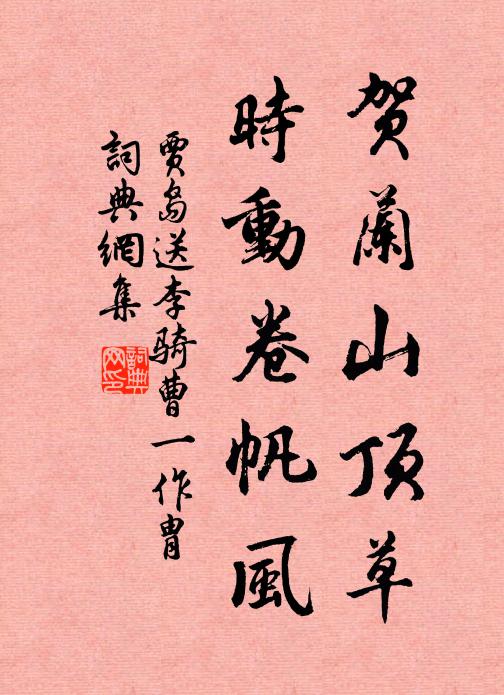 贺蘭山顶草
時動卷帆風
賈島送李骑曹一作胄
詞典網集
詞典網印